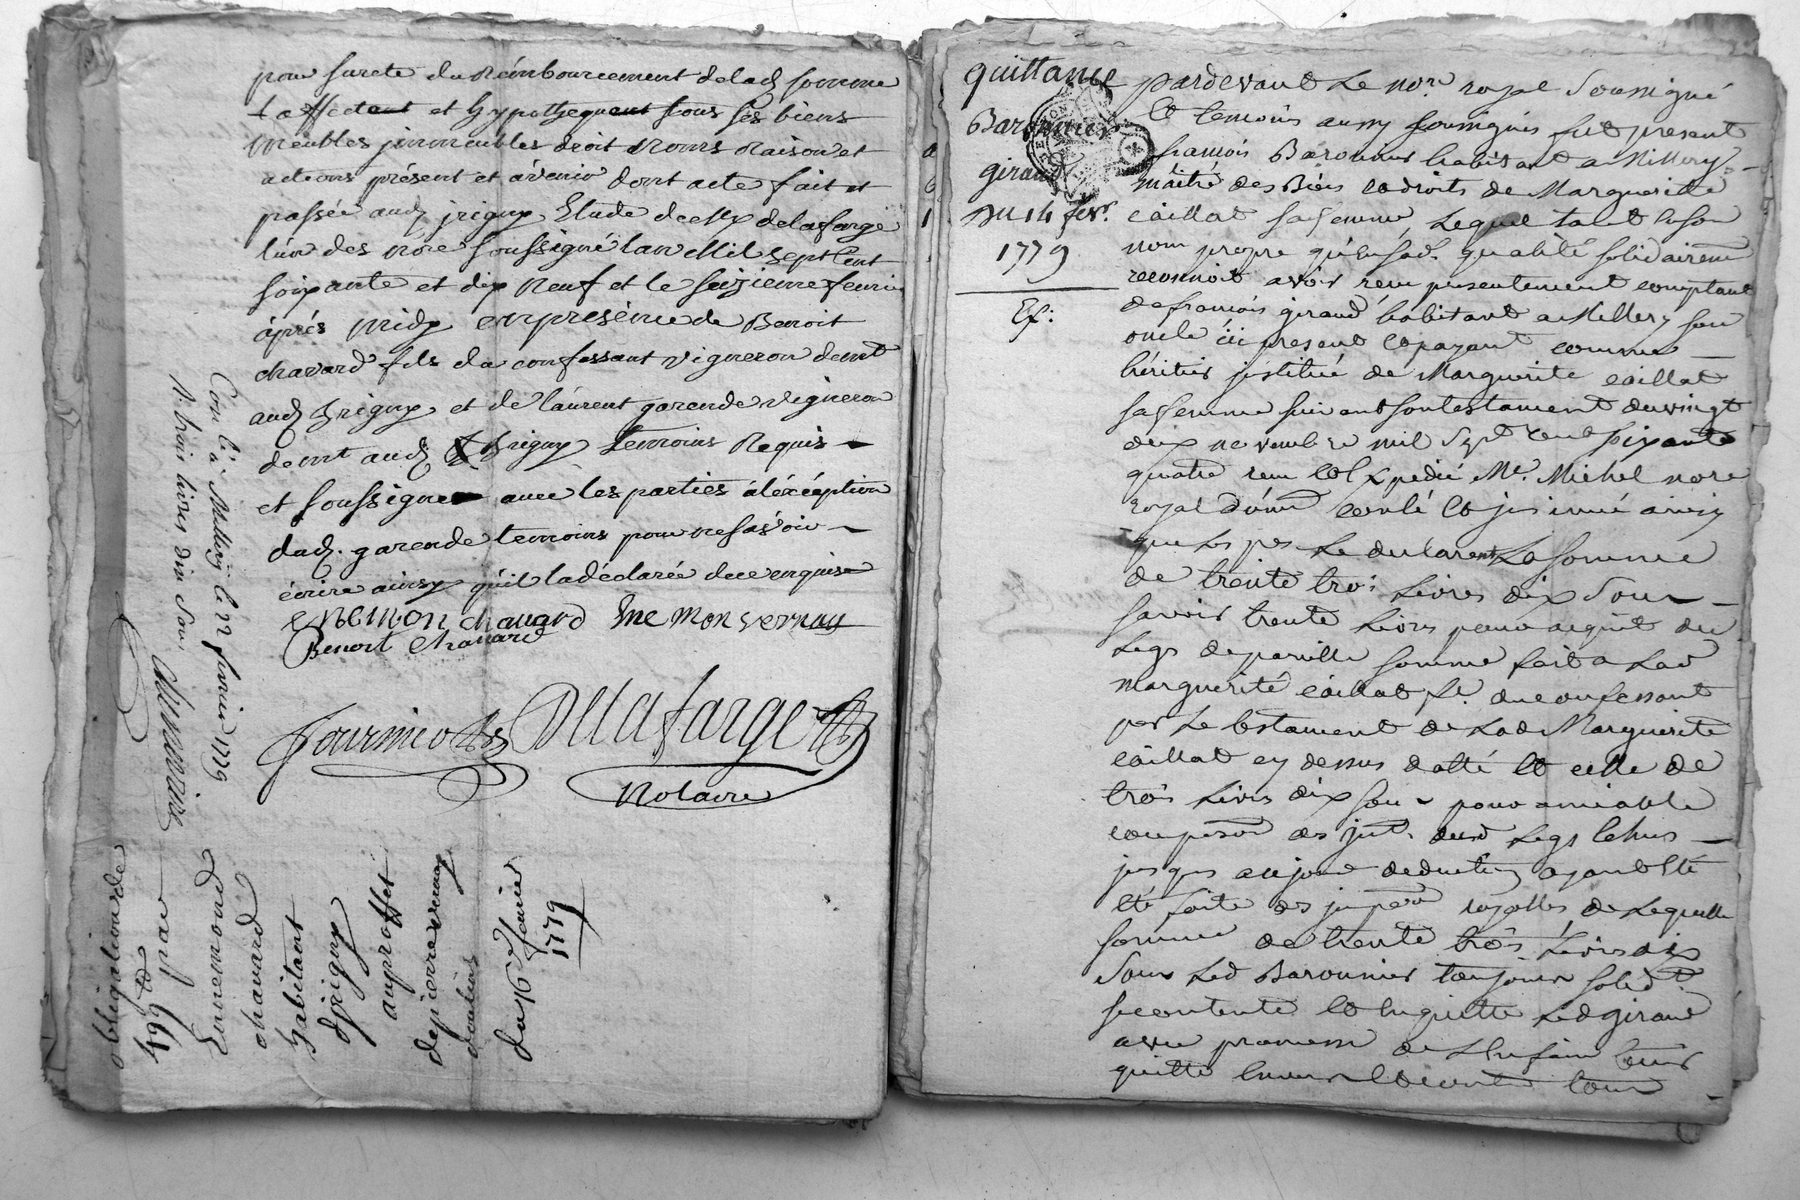 pour surete du Rémbourcement delad somme
affectent et hypothequent tous ses biens
meubles jmmeubles droit Noms Raison et
actions présent et avénir dont acte fait et
passée aud jrigny Etude de Me delafarge
lún des nore soussigné lan Mil sept Cent
soixante et dix Neuf et le seizieme fevrier
áprés midy en présénce de Benoit
chavard fils du confessant vigneron demt
aud Irigny et de láurent garende vigneron
demt aud Irigny temoins Requis
et soussigné avec les parties áléxcéption
dud. garende temoins pour ne sávoir
écrire ainsy quil la déclarée de ce enquis
enemon chavard Ene monvernay
Benoit Chavard
fournier DELLAfarge
Notaire
Con. lé à Millery le février 1779
R. trois livres dix sous
obligation de
499 ₶ par
Ennemond
chavard
habitant
djrigny
au proffet
de pierre vernay
du 16 fevrier
1779
quittance
Baronnier
giraud
Du 14 fevr.
1779
pardevant Le nore. royal Soussigné
Et temoins aussy soussignés fut present
francois Baronnier habitant a Millery
maitre des Biens et droits de Marguerite
caillat sa femme, Lequel tant en son
nom propre qu'en sad. qualité solidairemt
reconnoit avoir recu presentement comptant
de francois giraud habitant a Millery son
oncle ici present et payant comme
héritier jnstitué de Marguerite caillat
sa femme suivant son testament du vingt
deux novembre mil Sept cent soixante
quatre recu et Expedié Me. Michel nore
royal dûmt contlé et jnsinué ainsy
que Les pes Le declarent La somme
de trente trois Livres dix Sous
savoir trente Livres pour acquit du
Legs de pareille somme fait a Lad
marguerite caillat fe. du confessant
par Le testament de Lad Marguerite
caillat cy dessus datté et celle de
trois Livres dix sous pour amiable
composon des jnt. dud Legs Echus
jusques aujourd deduction ayant Eté
Eté faite des jmpons royalles de Laquelle
somme de trente trois Livres dix
sous Led Baronnier toujours solidt
se contente et En quitte Led giraud
avec promesse de L'En faire tenir
quitte Envers et contre tous